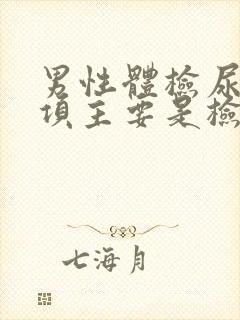 男性體檢尿
項主要是檢
七海月